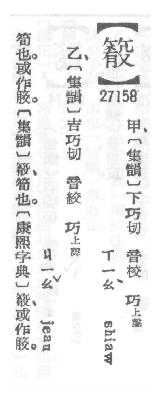 27158
甲、〔集韻〕下巧切 音校 巧上聲
ㄒㄧㄠˋ shiaw
乙、〔集韻〕吉巧切 音絞 巧上聲
ㄐㄧㄠˇ jeau
筍也。或作。〔集韻〕、筍也。〔康熙字典〕、或作。